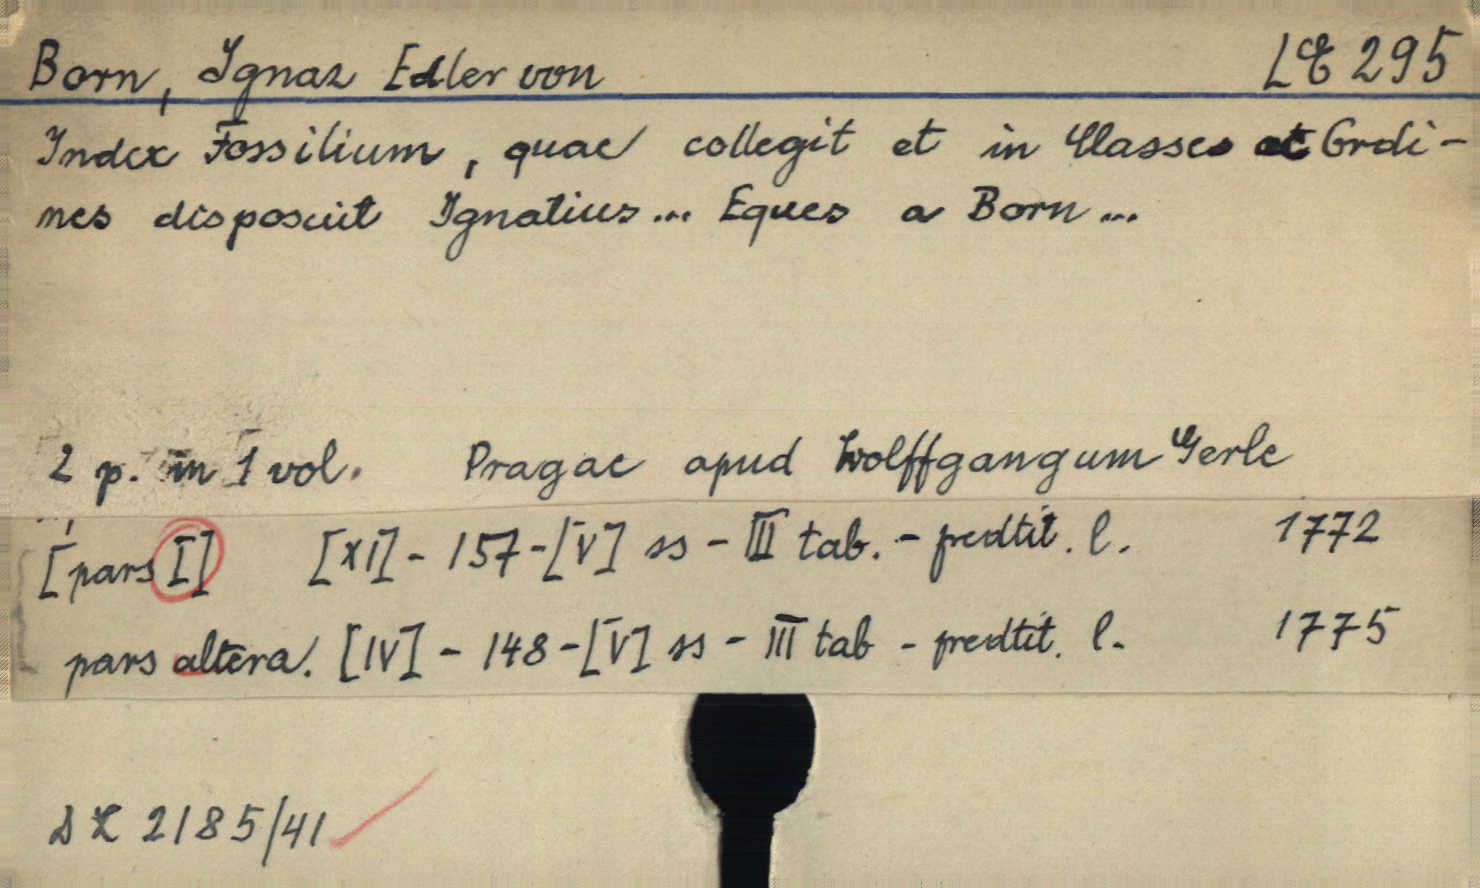 Born, Ignaz Edler von LE 295
Index Fossilium, quae collegit et in Classes et Ordi-
nes disposuit Ignatius... Eques a Born...
2 p. in 1 vol. Pragae apud Wolffgangum Gerle
[pars I] [XI] - 157 - [V] ss - III tab. - predtit. l. 1772
pars altera. [IV] - 148 - [V] ss - III tab - predtit. l. 1775
2185/41